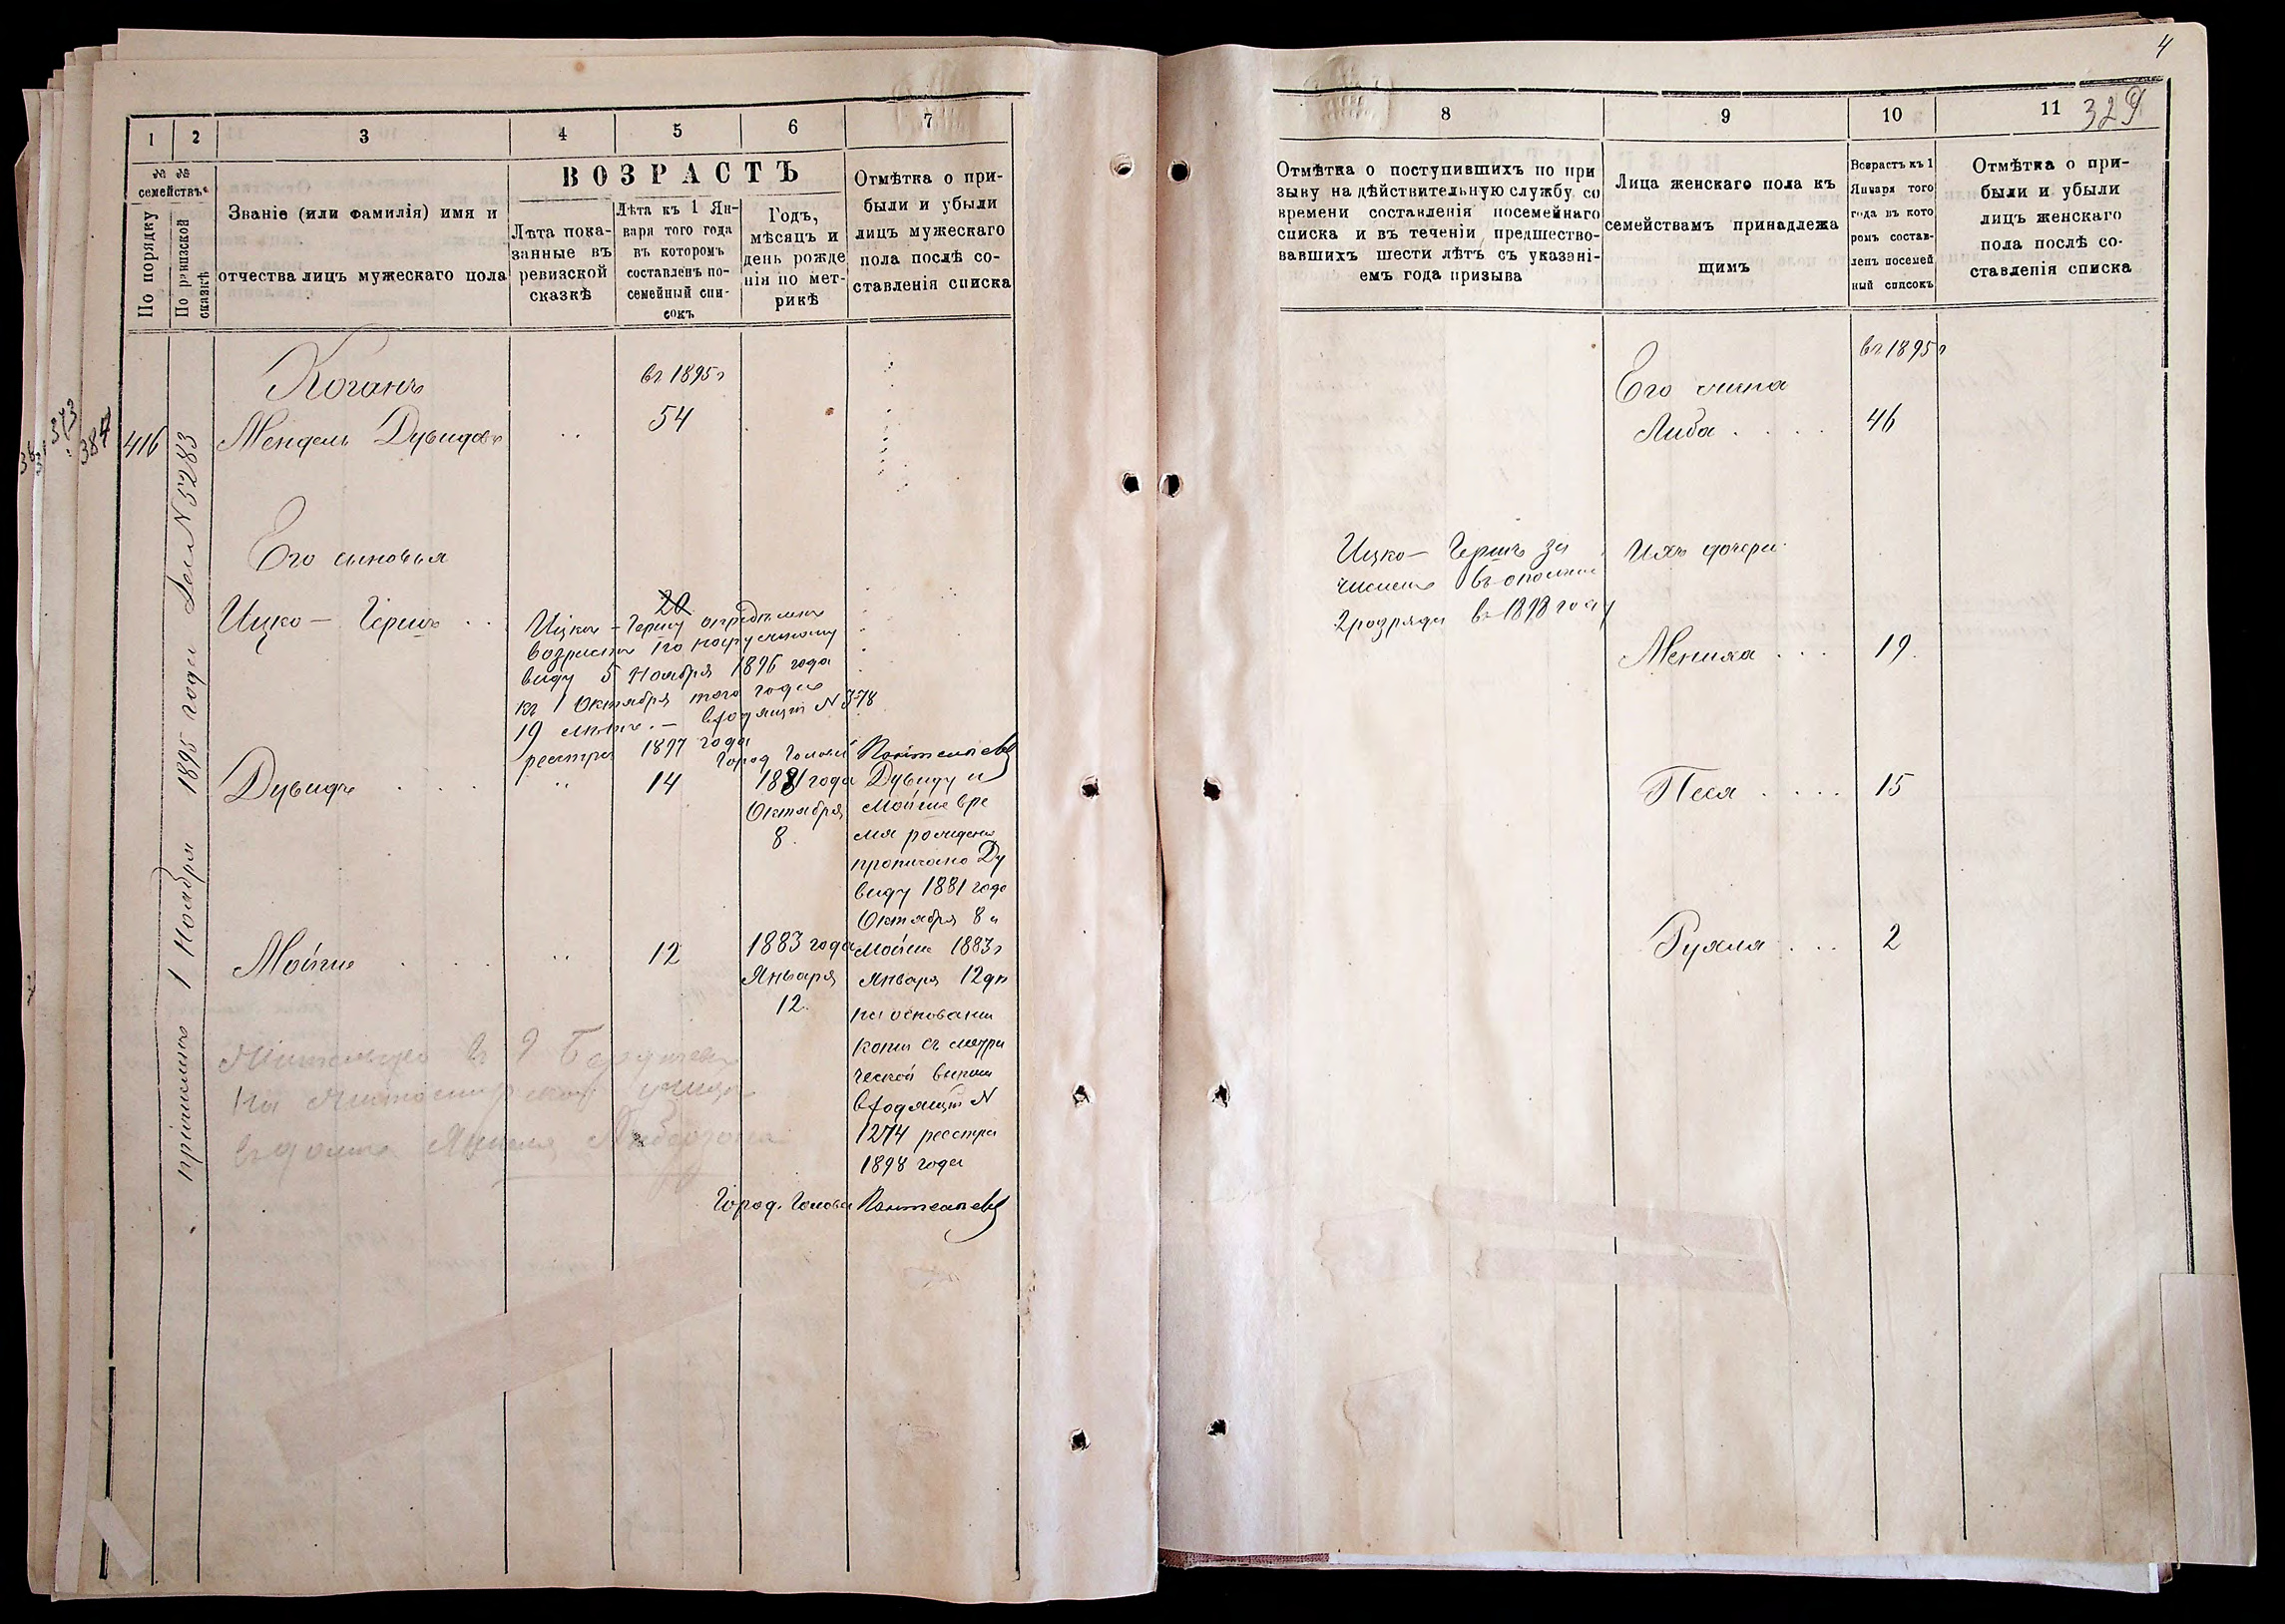 1
2
3
4
5
6
7
№ №
семействъ
По порядку
По ревизской
сказкѣ
Званіе (или фамилія) имя и
отчества лицъ мужескаго пола
ВОЗРАСТЪ
Лѣта пока-
занные въ
ревизской
сказкѣ
Лѣта къ 1 Ян-
варя того года
въ которомъ
составленъ по-
семейный спи-
сокъ
Годъ,
мѣсяцъ и
день рожде
нія по мет-
рикѣ
Отмѣтка о при-
были и убыли
лицъ мужескаго
пола послѣ со-
ставленія списка
373
384
416
1 Ноября 1895 года N 5283
Коганъ
въ 1895 г
Мендель Дувидовъ
54
Его сыновья
Ицко - Гершъ
20
Ицка - Гершу опредѣленъ
возрастъ по наружному
виду 5 Ноября 1896 года
къ 1 Октября того года
19 лѣтъ. - входящій N 378
реестра 1897 года
Город Голова Пантелѣевъ
Дувидъ
14
1881 года
Октября
8.
Дувиду и
Мойше вре
мя рожденія
прописано Ду
виду 1881 года
Октября 8 и
Мойше 1883 г
Января 12 дн
на основаніи
копіи съ метри
ческой выписи
входящій N
1274 реестра
1898 года
Мойше
12
1883 года
Января
12.
въ г Бердичевѣ
на
въ домѣ
Город. Голова Пантелѣевъ
4
8
9
10
11
329
Отмѣтка о поступившихъ по при
зыву на дѣйствительную службу со
времени составленія посемейнаго
списка и въ теченіи предшество-
вавшихъ шести лѣтъ съ указані-
емъ года призыва
Лица женскаго пола къ
семействамъ принадлежа
щимъ
Возрастъ къ 1
Января того
года въ кото
ромъ состав-
ленъ посемей
ный списокъ
Отмѣтка о при-
были и убыли
лицъ женскаго
пола послѣ со-
ставленія списка
въ 1895 г
Его жена
Либа
46
Ицко - Гершъ за
численъ въ ополченіе
2 разряда въ 1898 году
Ихъ дочери
Мениха
19.
Песя
15
Рухля
2